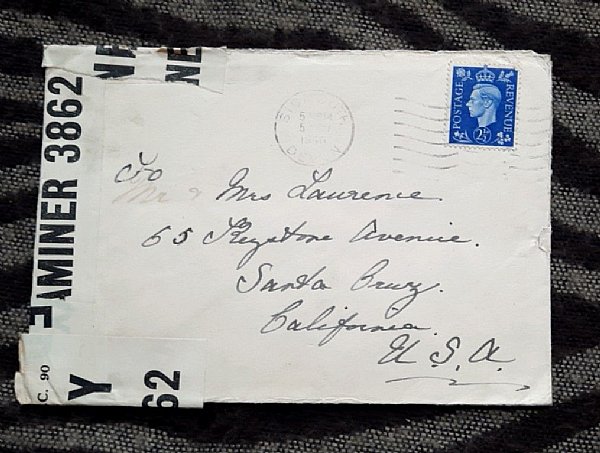 EXAMINER 3862
P.C. 90
Y
62
NE
POSTAGE
REVENUE
2½
5
C/o
Mr & Mrs Laurence.
65 Keystone Avenue.
Santa Cruz.
California.
U.S.A.